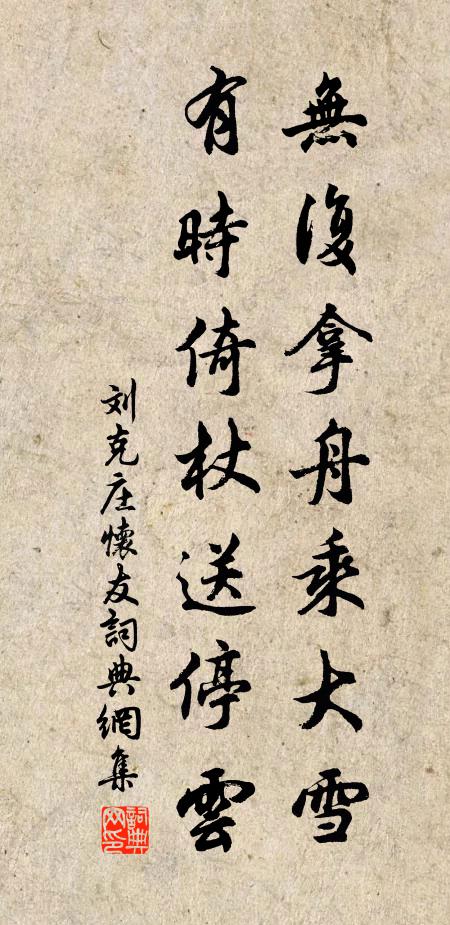 無復拿舟乘大雪
有時倚杖送停雲
刘克庄懷友詞典網集
詞典網印